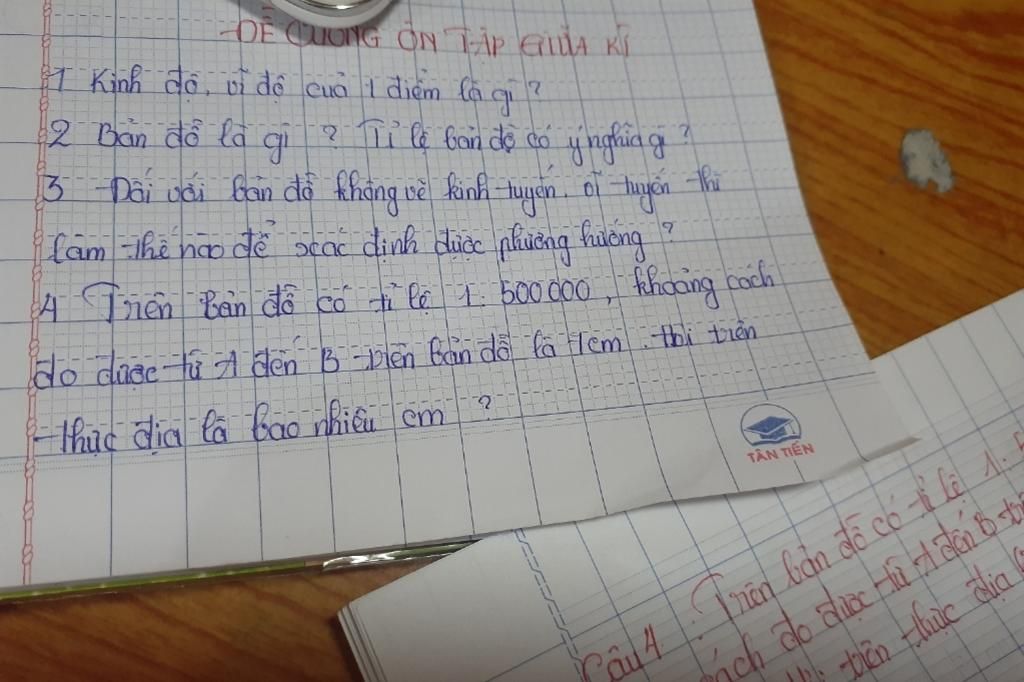 ĐỀ CƯƠNG ÔN TẬP GIỮA KÌ
1 Kinh độ, vĩ độ của 1 điểm là gì?
2 Bản đồ là gì ? Tỉ lệ bản đồ có ý nghĩa gì?
3 Đối với bản đồ không vẽ kinh tuyến, vĩ tuyến thì
làm thế nào để xác định được phương hướng?
4 Trên bản đồ có tỉ lệ 1: 500000, khoảng cách
đo được từ A đến B trên bản đồ là 1cm thì trên
thực địa là bao nhiêu cm ?
TÂN TIẾN
Câu 4 Trên bản đồ có tỉ lệ 1.
cách đo được từ A đến B
trên thực địa